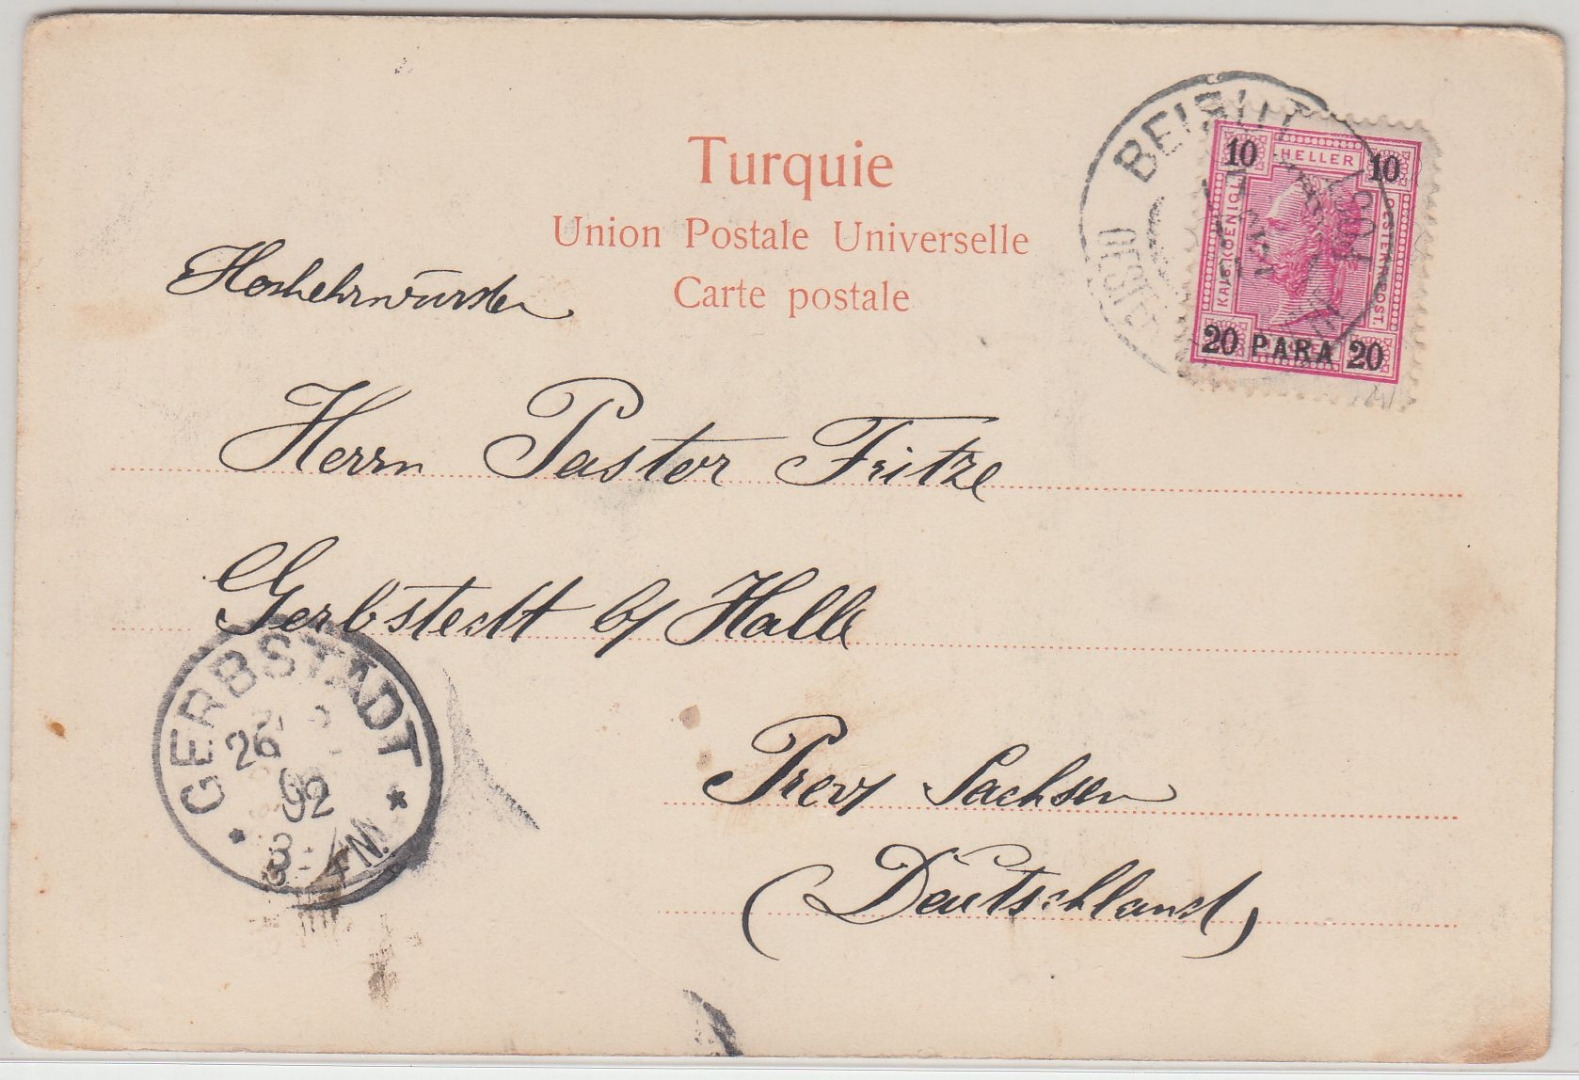 Turquie
Union Postale Universelle
Carte postale
BEIRUT
OESTER
10 HELLER 10
KAIS. KOENIGL. OESTERR. POST.
20 PARA 20
Hochehrwürden
Herrn Pastor Fritze
Gerbstedt b/ Halle
Prov Sachsen
(Deutschland)
GERBSTADT
26
02
8-